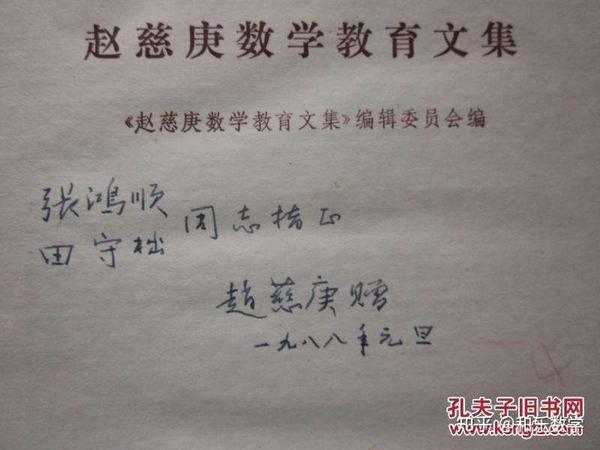 赵慈庚数学教育文集
《赵慈庚数学教育文集》编辑委员会编
张鸿顺
田守拙 同志指正
赵慈庚赠
一九八八年元旦
孔夫子旧书网
www.kongfz.com
知乎 @和乐数学